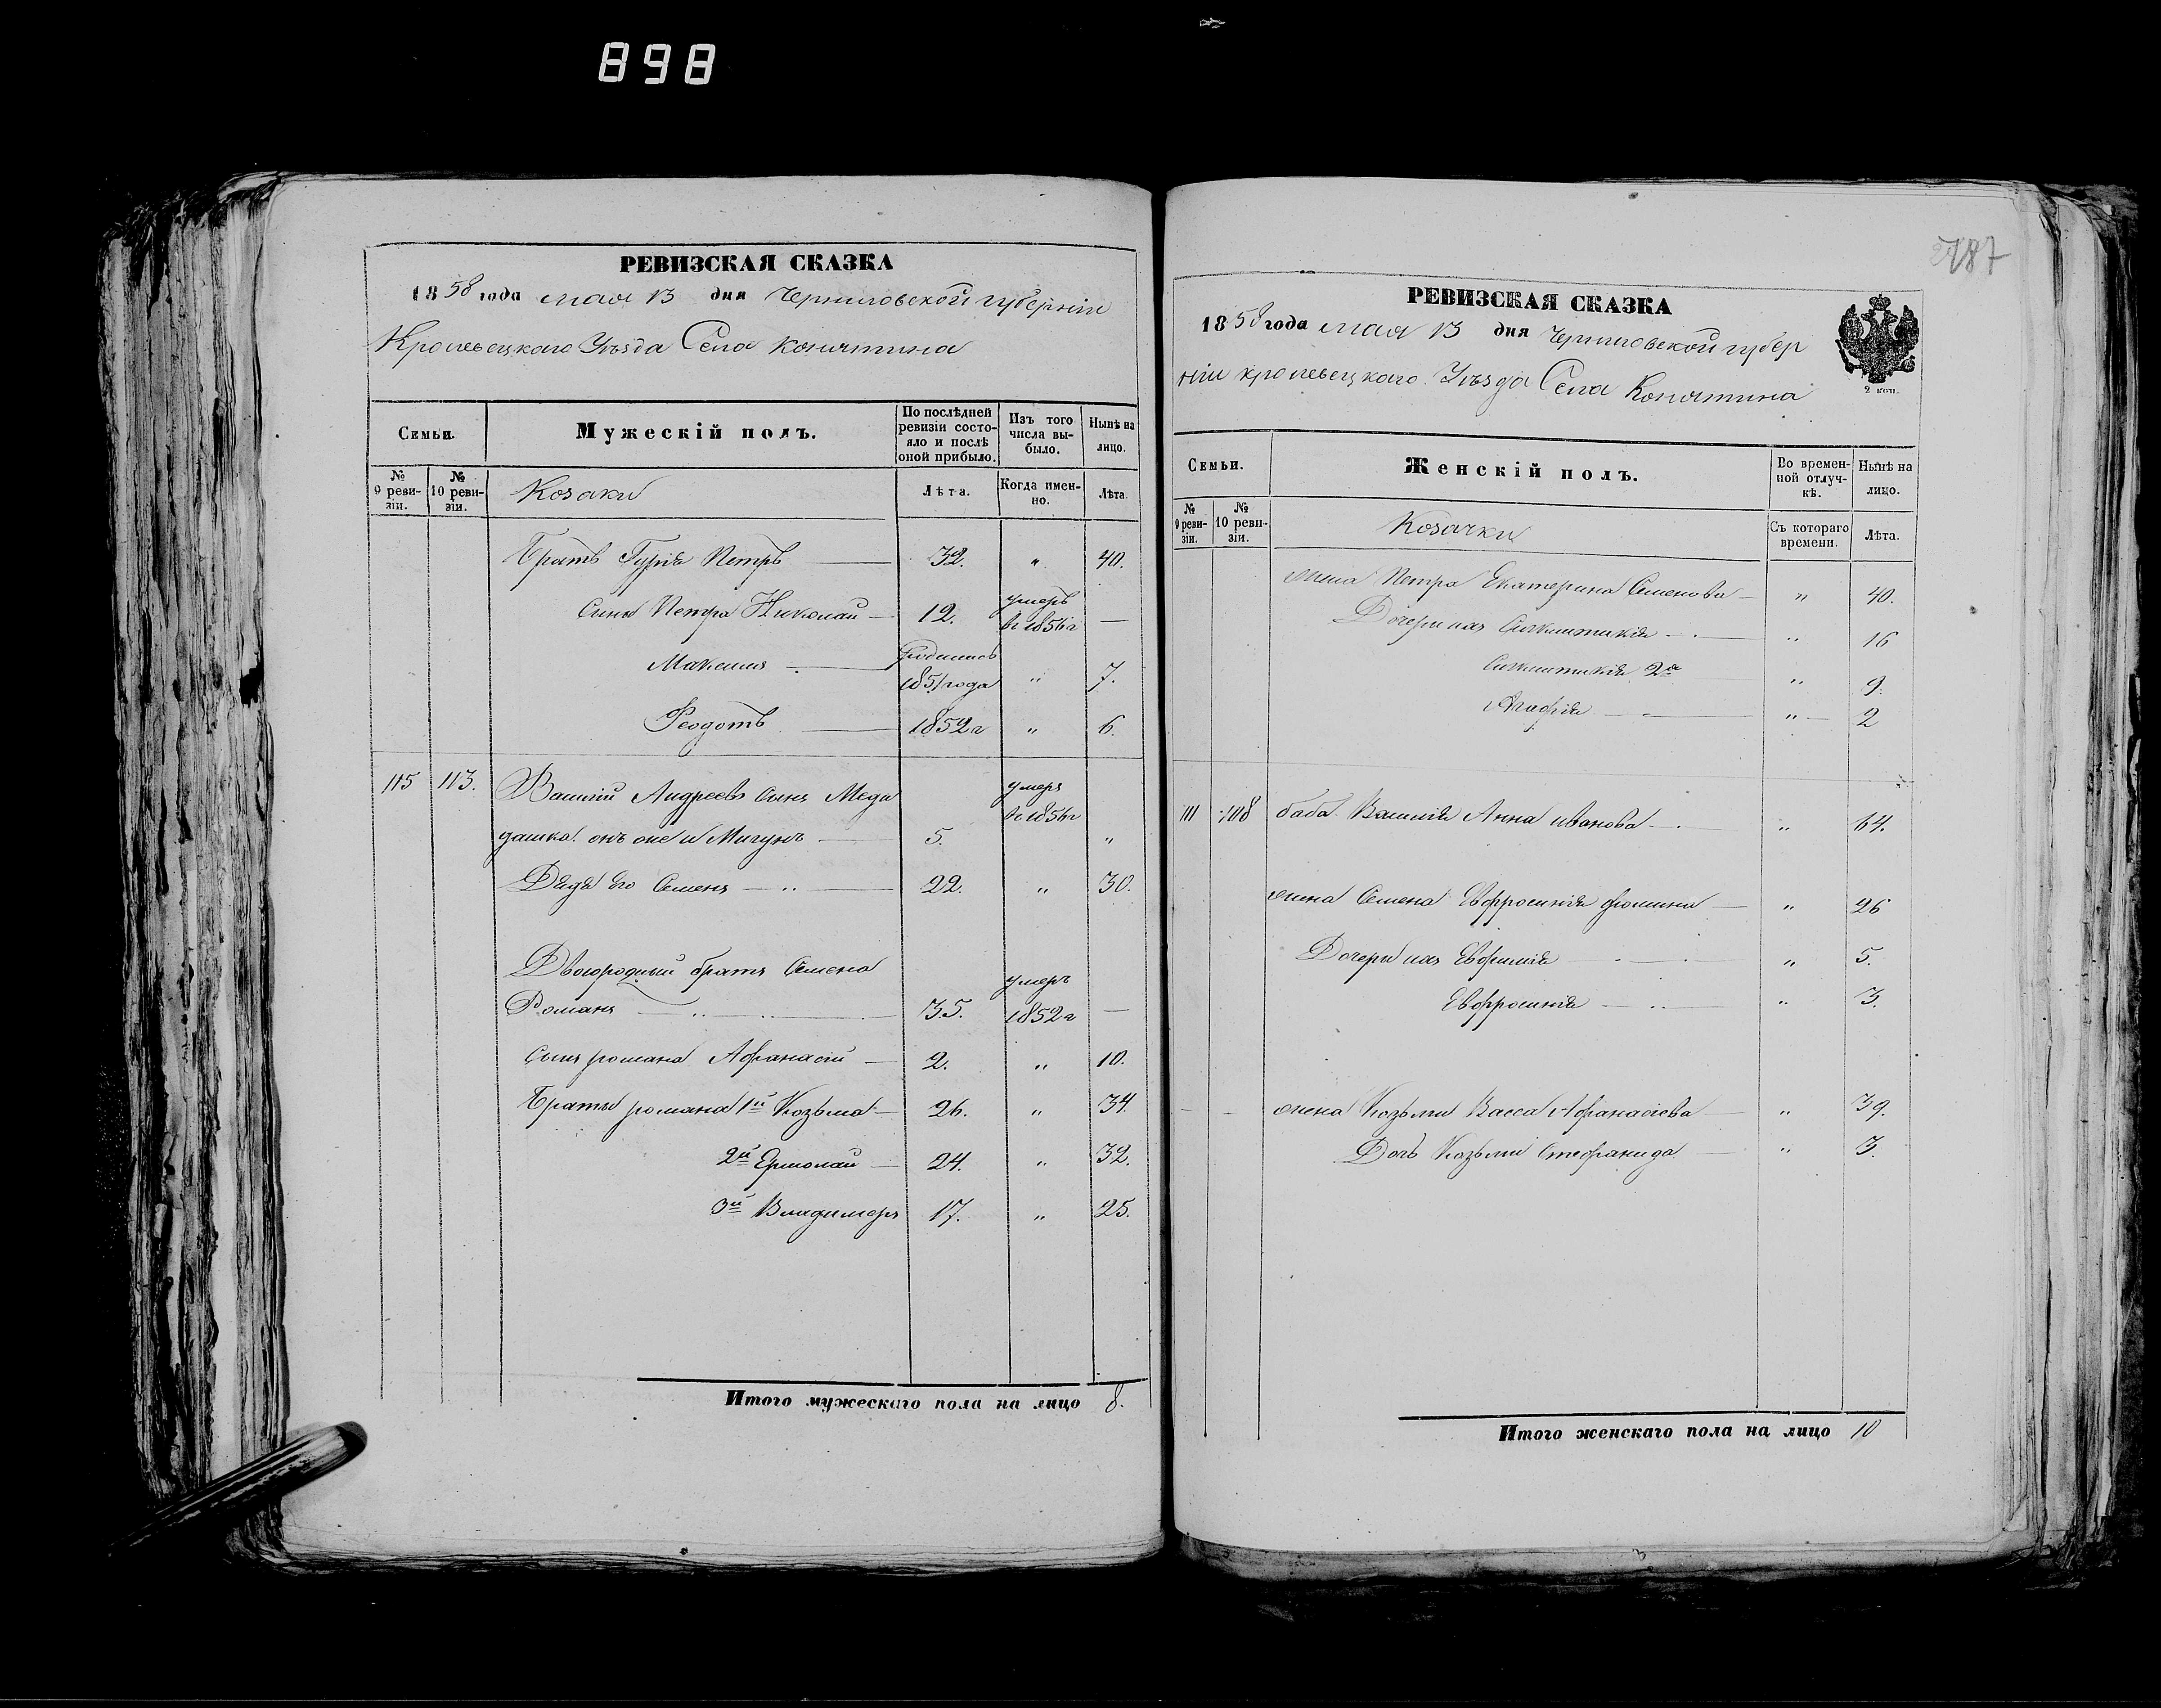 898
РЕВИЗСКАЯ СКАЗКА
1858 года мая 13 дня Черниговской губерніи
Кролевецкаго Уѣзда Села Конятина
Семьи.
Мужескій полъ.
По послѣдней ревизіи состояло и послѣ оной прибыло.
Изъ того числа выбыло.
Нынѣ на лицо.
№ 9 ревизіи.
№ 10 ревизіи.
Козаки
Лѣта.
Когда именно.
Лѣта.
Братъ Гурія Петръ 32. " 40.
Сынъ Петра Николай 12. умеръ в 1856 г —
Максимъ Родился 1851 года " 7.
Феодотъ 1852 г " 6.
115 113. Василій Андреевъ Сынъ Меди
дашка онъ же и Мигунъ 5. умеръ в 1856 г "
Дядя его Семенъ 22. " 30.
Двоюродный братъ Семена
Романъ 35. умеръ 1852 г —
Сынъ романа Афанасій 2. " 10.
Браты романа 1й Козьма 26. " 34.
2й Ермолай 24. " 32.
3й Владимеръ 17. " 25.
Итого мужескаго пола на лицо 8.
787
РЕВИЗСКАЯ СКАЗКА
1858 года мая 13 дня Черниговской губер
ніи кролевецкаго Уѣзда Села Конятина
2 коп.
Семьи.
Женскій полъ.
Во временной отлучкѣ.
Нынѣ на лицо.
№ 9 ревизіи.
№ 10 ревизіи.
Козачки
Съ котораго времени.
Лѣта.
жена Петра Екатерина Семенова " 40.
Дочери ихъ " 16
2я " 9.
Агафія " 2
баба Василія Анна иванова " 64.
жена Семена Евфросинія фомина " 26
Дочери ихъ Евфимія " 5.
Евфросинія " 3.
жена Козьмы Васса Афанасіева " 39.
Дочь Козьмы Стефанида " 3.
Итого женскаго пола на лицо 10